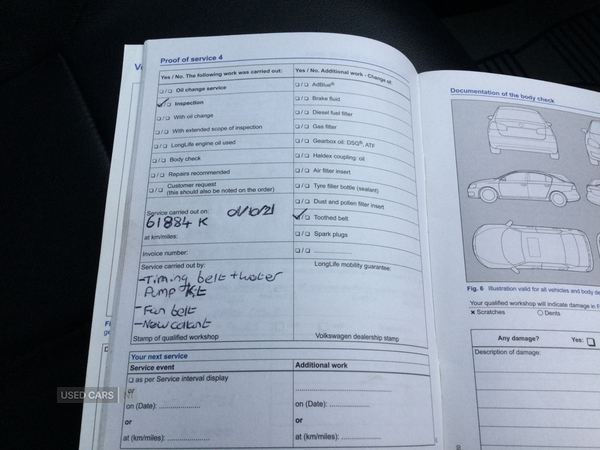 Proof of service 4
Yes / No. The following work was carried out:
☐/☐ Oil change service
☑/☐ Inspection
☐/☐ With oil change
☐/☐ With extended scope of inspection
☐/☐ LongLife engine oil used
☐/☐ Body check
☐/☐ Repairs recommended
☐/☐ Customer request
(this should also be noted on the order)
Service carried out on: 01/10/21
61884 K
at km/miles:
Invoice number:
Service carried out by:
-Timing belt + water
Pump Kit
- Fan belt
- New collant
Stamp of qualified workshop
Yes / No. Additional work - Change of:
☐/☐ AdBlue®
☐/☐ Brake fluid
☐/☐ Diesel fuel filter
☐/☐ Gas filter
☐/☐ Gearbox oil: DSG®, ATF
☐/☐ Haldex coupling: oil
☐/☐ Air filter insert
☐/☐ Tyre filler bottle (sealant)
☐/☐ Dust and pollen filter insert
☑/☐ Toothed belt
☐/☐ Spark plugs
☐/☐ ....................
LongLife mobility guarantee:
Volkswagen dealership stamp
Your next service
Service event
☐ as per Service interval display
or
on (Date): ....................
or
at (km/miles): ....................
Additional work
....................
on (Date): ....................
or
at (km/miles): ....................
Documentation of the body check
Fig. 6 Illustration valid for all vehicles and body
Your qualified workshop will indicate damage in
× Scratches ○ Dents
Any damage? Yes: ☐
Description of damage:
USED CARS NI